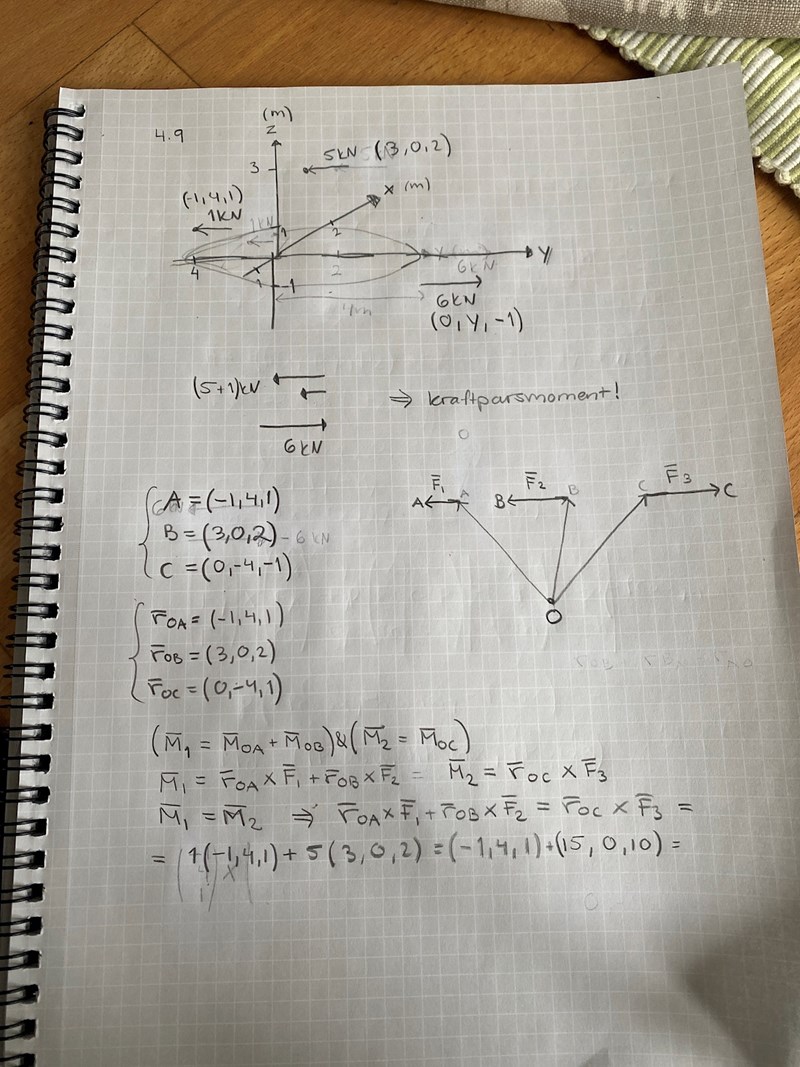 4.9
(m)
z
3
5kN (3,0,2)
(-1,4,1)
1kN
1kN
x (m)
1
2
4
2
y
6kN
1
-1
6kN
(0,y,-1)
(5+1)kN
6kN
⇒ kraftparsmoment!
A = (-1,4,1)
B = (3,0,2) - 6 kN
C = (0,-4,-1)
F̄₁ A F̄₂ B C F̄₃
A B C
O
r̄OA = (-1,4,1)
r̄OB = (3,0,2)
r̄OC = (0,-4,1)
(M̄₁ = M̄OA + M̄OB) & (M̄₂ = M̄OC)
M̄₁ = r̄OA × F̄₁ + r̄OB × F̄₂ = M̄₂ = r̄OC × F̄₃
M̄₁ = M̄₂ ⇒ r̄OA × F̄₁ + r̄OB × F̄₂ = r̄OC × F̄₃ =
= 1(-1,4,1) + 5(3,0,2) = (-1,4,1) + (15,0,10) =